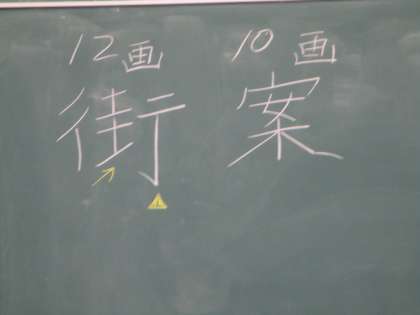 12画 10画
街 案
止